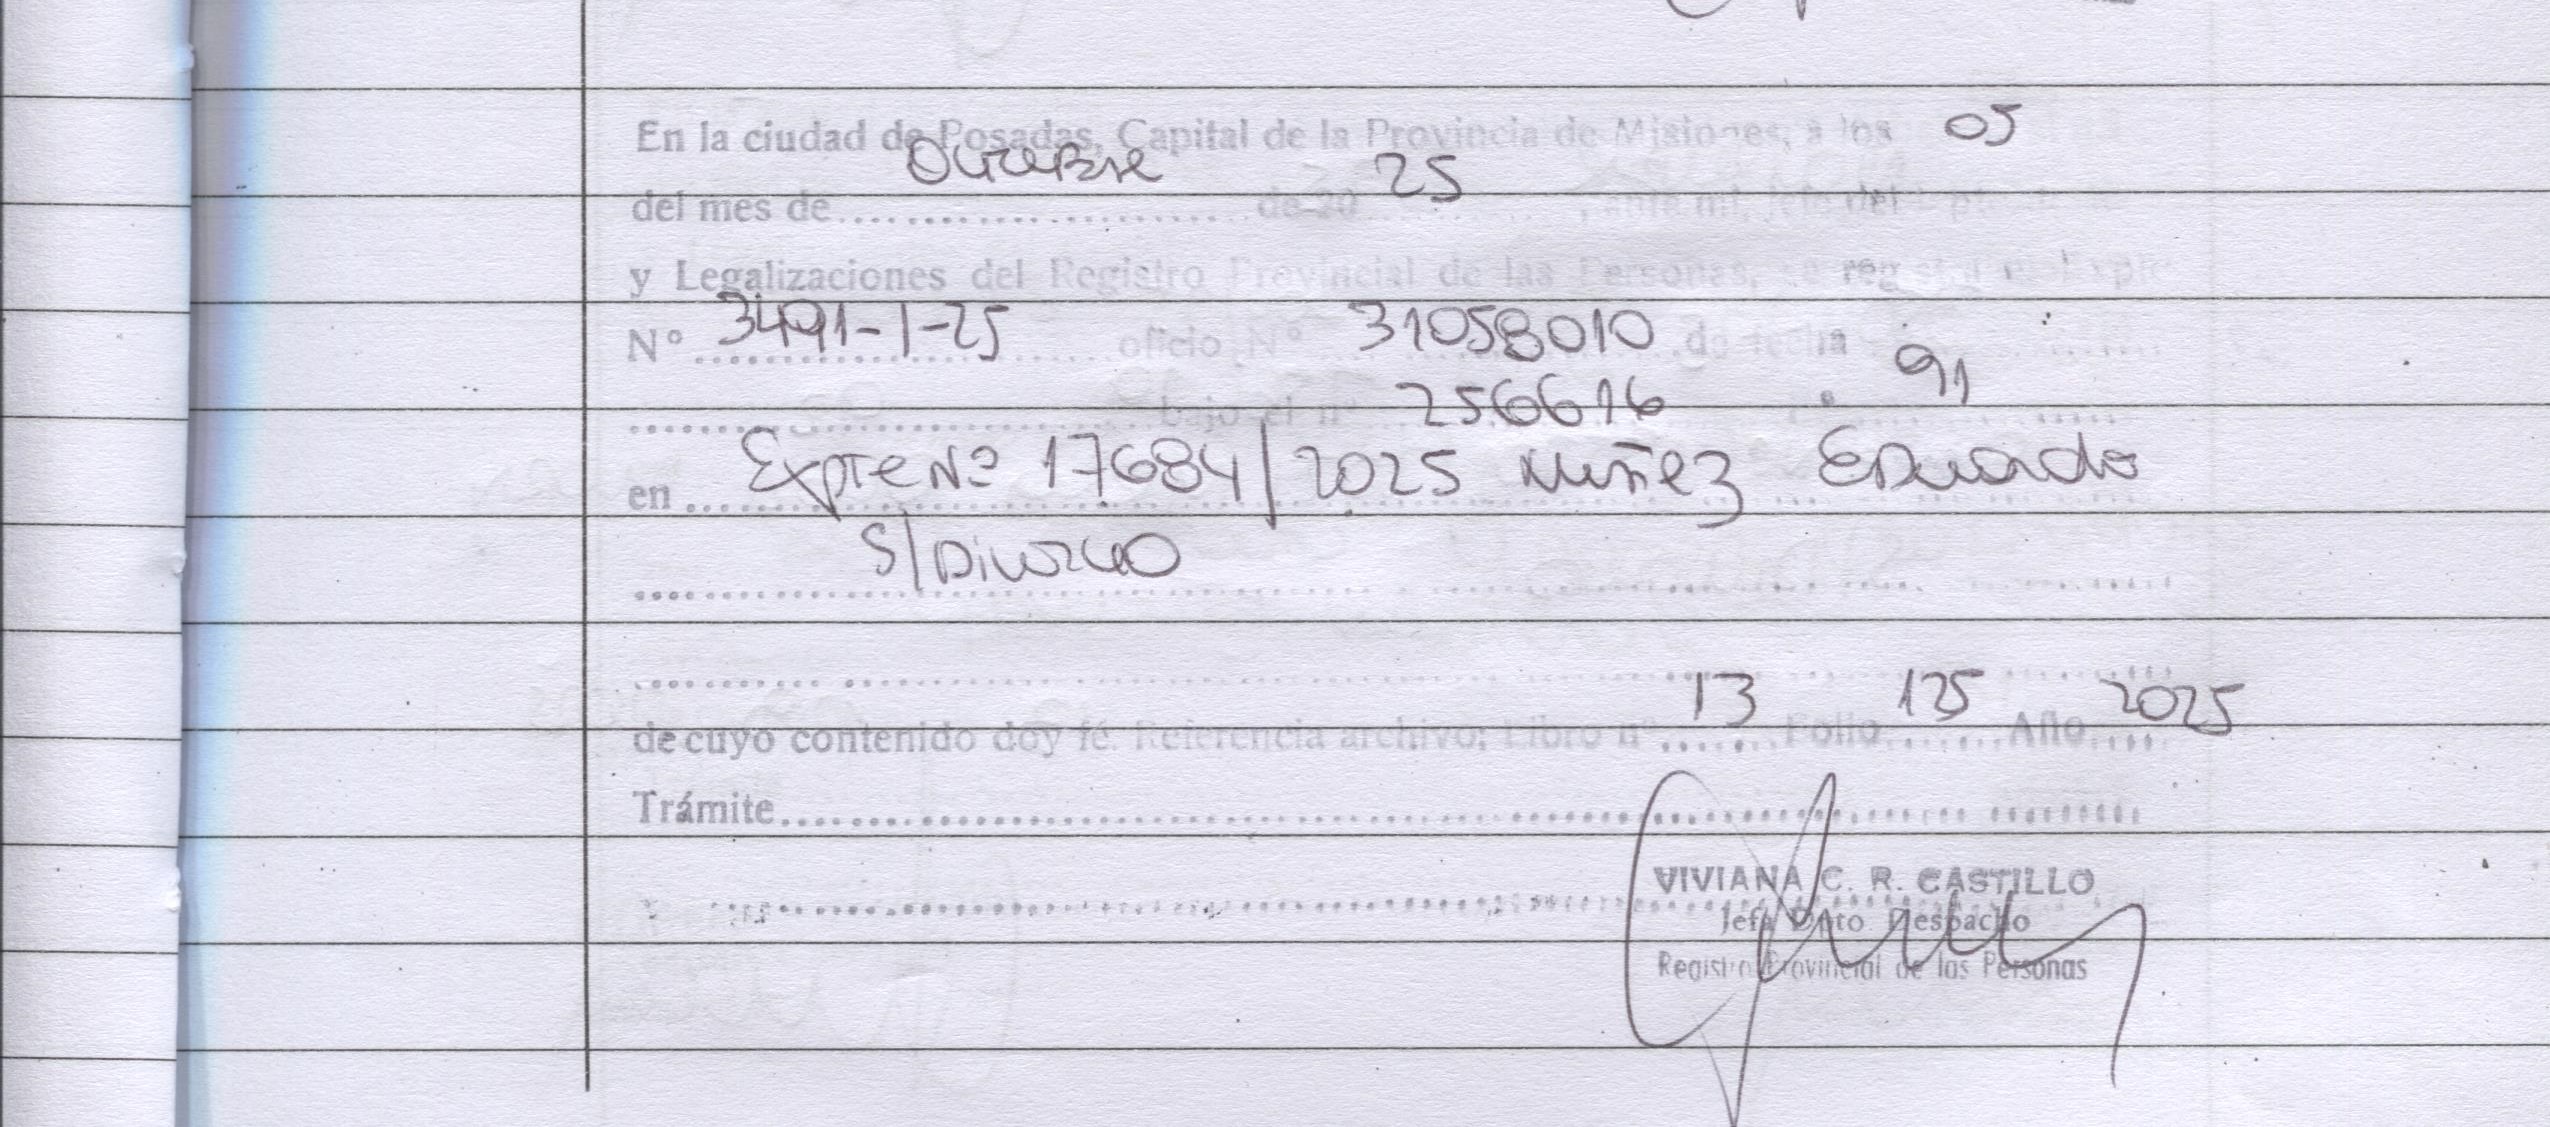 En la ciudad de Posadas, Capital de la Provincia de Misiones, a los 05
del mes de Diciembre de 20 25, ante mi, Jefe del Dpto
y Legalizaciones del Registro Provincial de las Personas, se registra el Expte
N° 3491-1-25 oficio N° 31058010 de fecha
bajo el n° 256616 91
en Expte Nº 17684/2025 Nuñez Eduardo
S/Divorcio
de cuyo contenido doy fé. Referencia archivo: Libro n° 13 Folio 125 Año 2025
Trámite
VIVIANA C. R. CASTILLO
Jefa Dpto Despacho
Registro Provincial de las Personas